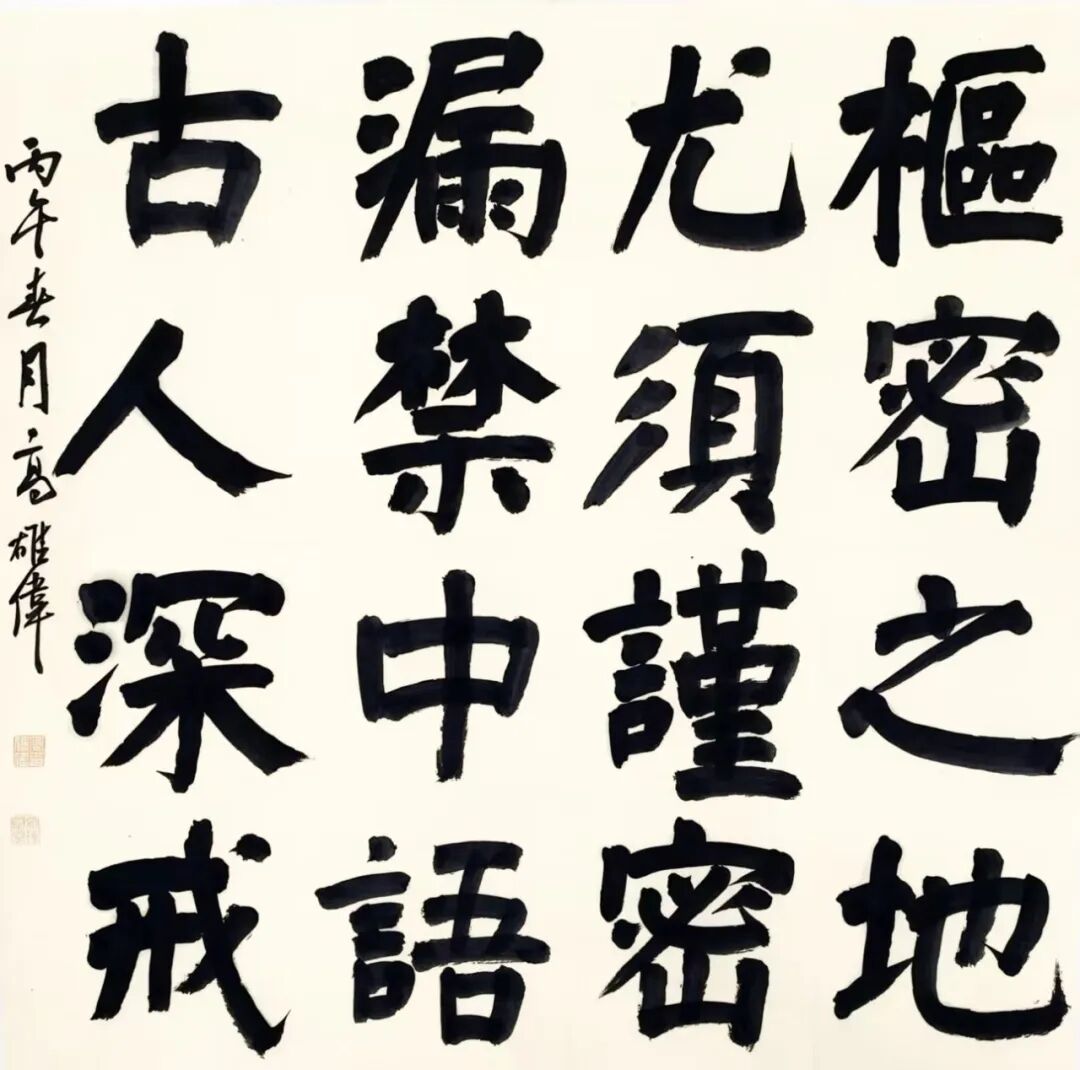 樞密之地
尤須謹密
漏禁中語
古人深戒
丙午春月高雄偉